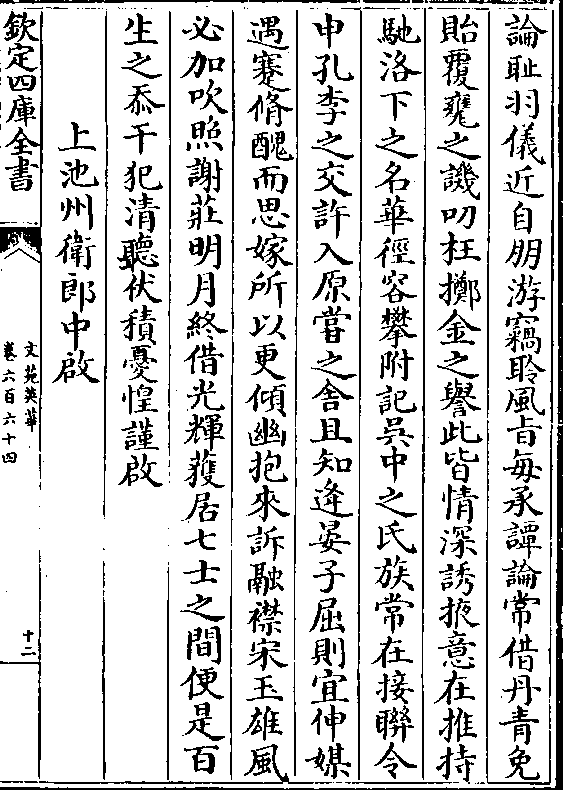 論耻羽儀近自朋游竊聆風㫖每承譚論常借丹青免
貽覆甕之譏叨枉擲金之譽此皆情深誘掖意在推持
馳洛下之名華徑容攀附記吳中之氏族常在接聯令
申孔李之交許入原嘗之舍且知逢晏子屈則宜伸媒
遇蹇脩醜而思嫁所以更傾幽抱來訴融襟宋玉雄風
必加吹照謝莊明月終借光輝獲居七士之間便是百
生之忝干犯清聽伏積憂惶謹啟
上池州衛郎中啟
欽定四庫全書
文苑英華
卷六百六十四
十二